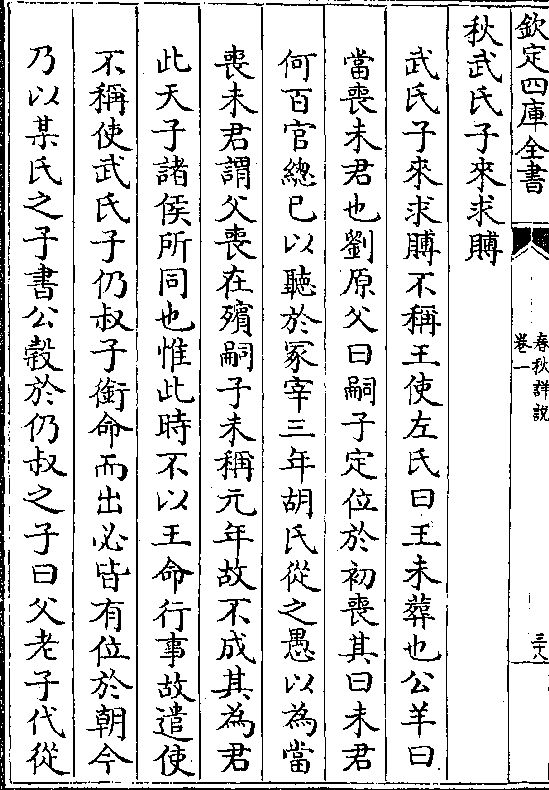 欽定四庫全書
春秋詳說
卷一
三十八
秋武氏子來求賻
武氏子來求賻不稱王使左氏曰王未葬也公羊曰
當喪未君也劉原父曰嗣子定位於初喪其曰未君
何百官總已以聽於冢宰三年胡氏從之愚以為當
喪未君謂父喪在殯嗣子未稱元年故不成其為君
此天子諸侯所同也惟此時不以王命行事故遣使
不稱使武氏子仍叔子銜命而出必皆有位於朝今
乃以某氏之子書公穀於仍叔之子曰父老子代從